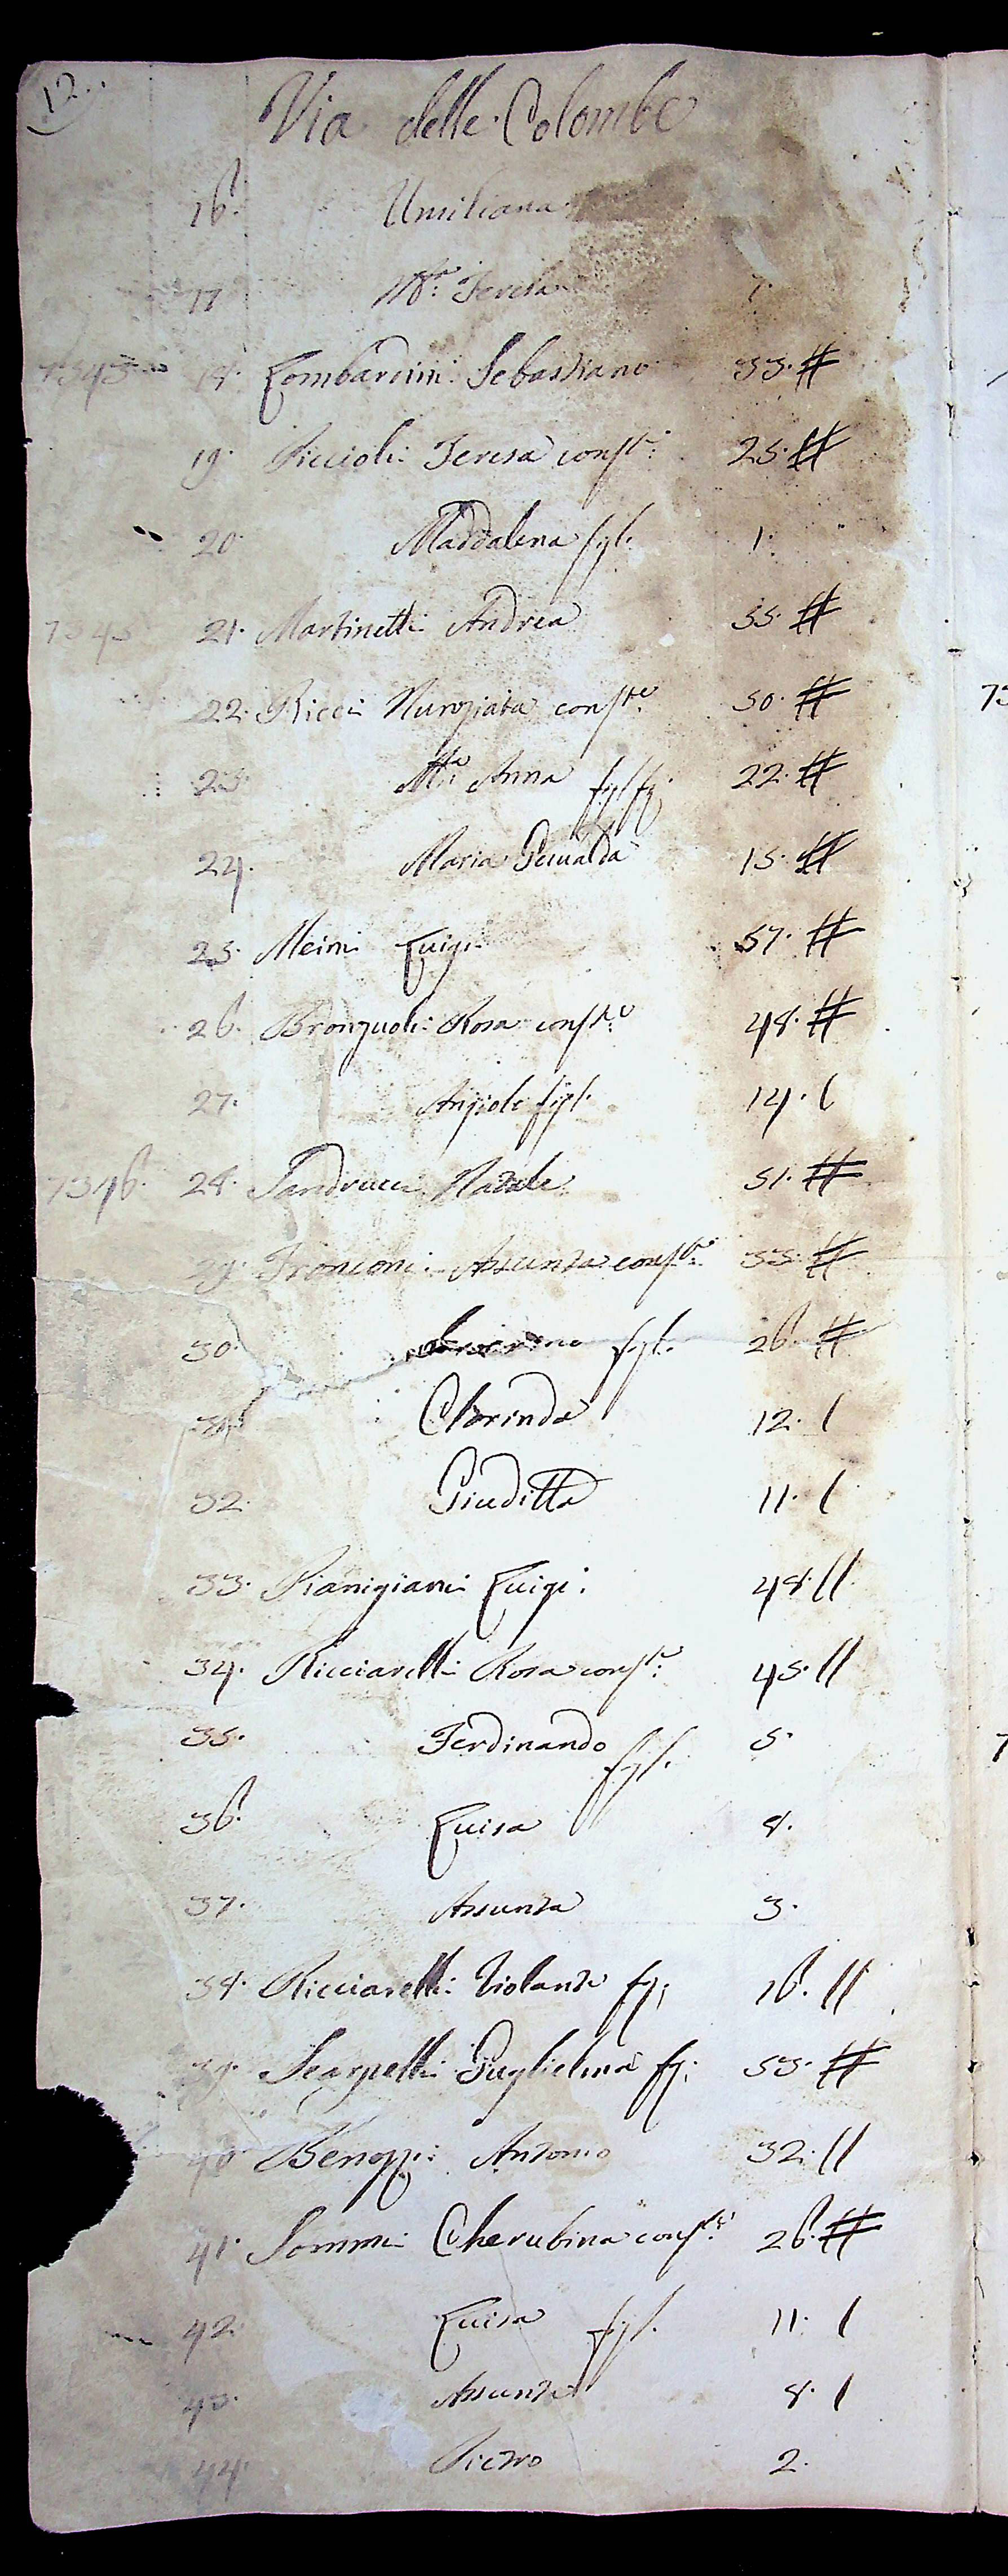 12.
Via delle Colombe
16. Umiliana
17 M.ª Teresa 7.
7343 18. Lombardini Sebastiano 33. #
19. Riccioli Teresa cons.te 25. #
20. Maddalena figl. 1.
7345 21. Martinelli Andrea 55. #
22. Ricci Nunziata cons.te 50. #
23. M.ª Anna figl. 22. #
24. Maria 15. #
25. Meini Luigi 57. #
26. Bronzuoli Rosa cons.te 48. #
27. Angiolo figl. 14. /
7346. 28. Sandrucci Natale 51. #
29. Tronconi Assunta cons.te 33. #
30. figl. 26. #
31. Clorinda 12. /
32. Giuditta 11. /
33. Pianigiani Luigi. 48. //
34. Ricciarelli Rosa cons.te 45. //
35. Ferdinando figl. 5.
36. Luisa 8.
37. Assunta 3.
38. Ricciarelli Violante fg; 16. //
39. Scarpelli Guglielma fg; 55. #
40 Benozzi Antonio 32. //
41. Sommi Cherubina cons.te 26. #
42. Luisa figl. 11. /
43. Assunta 8. /
44. Pietro 2.